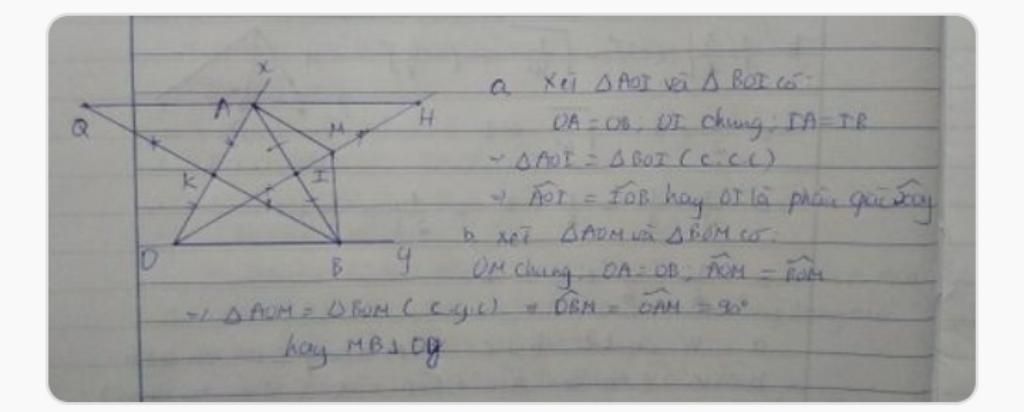 x
Q A H
M
K I
O B y
a. Xét ΔAOI và ΔBOI có:
OA = OB; OI chung; IA = IB
=> ΔAOI = ΔBOI (c.c.c)
=> \widehat{AOI} = \widehat{IOB} hay OI là phân giác \widehat{xOy}
b. xét ΔAOM và ΔBOM có:
OM chung; OA = OB; \widehat{AOM} = \widehat{BOM}
=> ΔAOM = ΔBOM (c.g.c) => \widehat{OBM} = \widehat{OAM} = 90°
hay MB ⊥ Oy